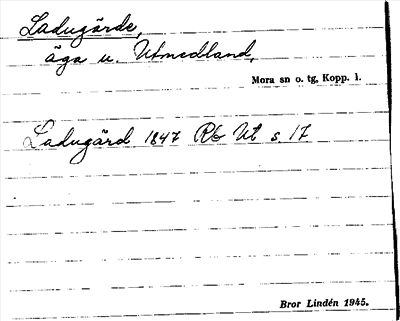 Ladugårde,
äga u. Utmedland,
Mora sn o. tg, Kopp. l.
Ladugård 1847 Rb Ut s. 17
Bror Lindén 1945.